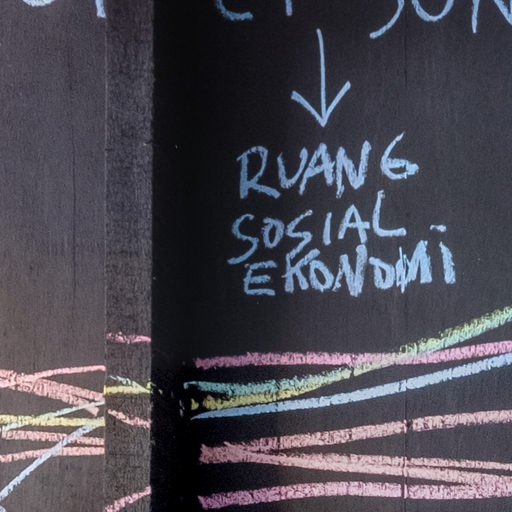 RUANG
SOSIAL
EKONOMi